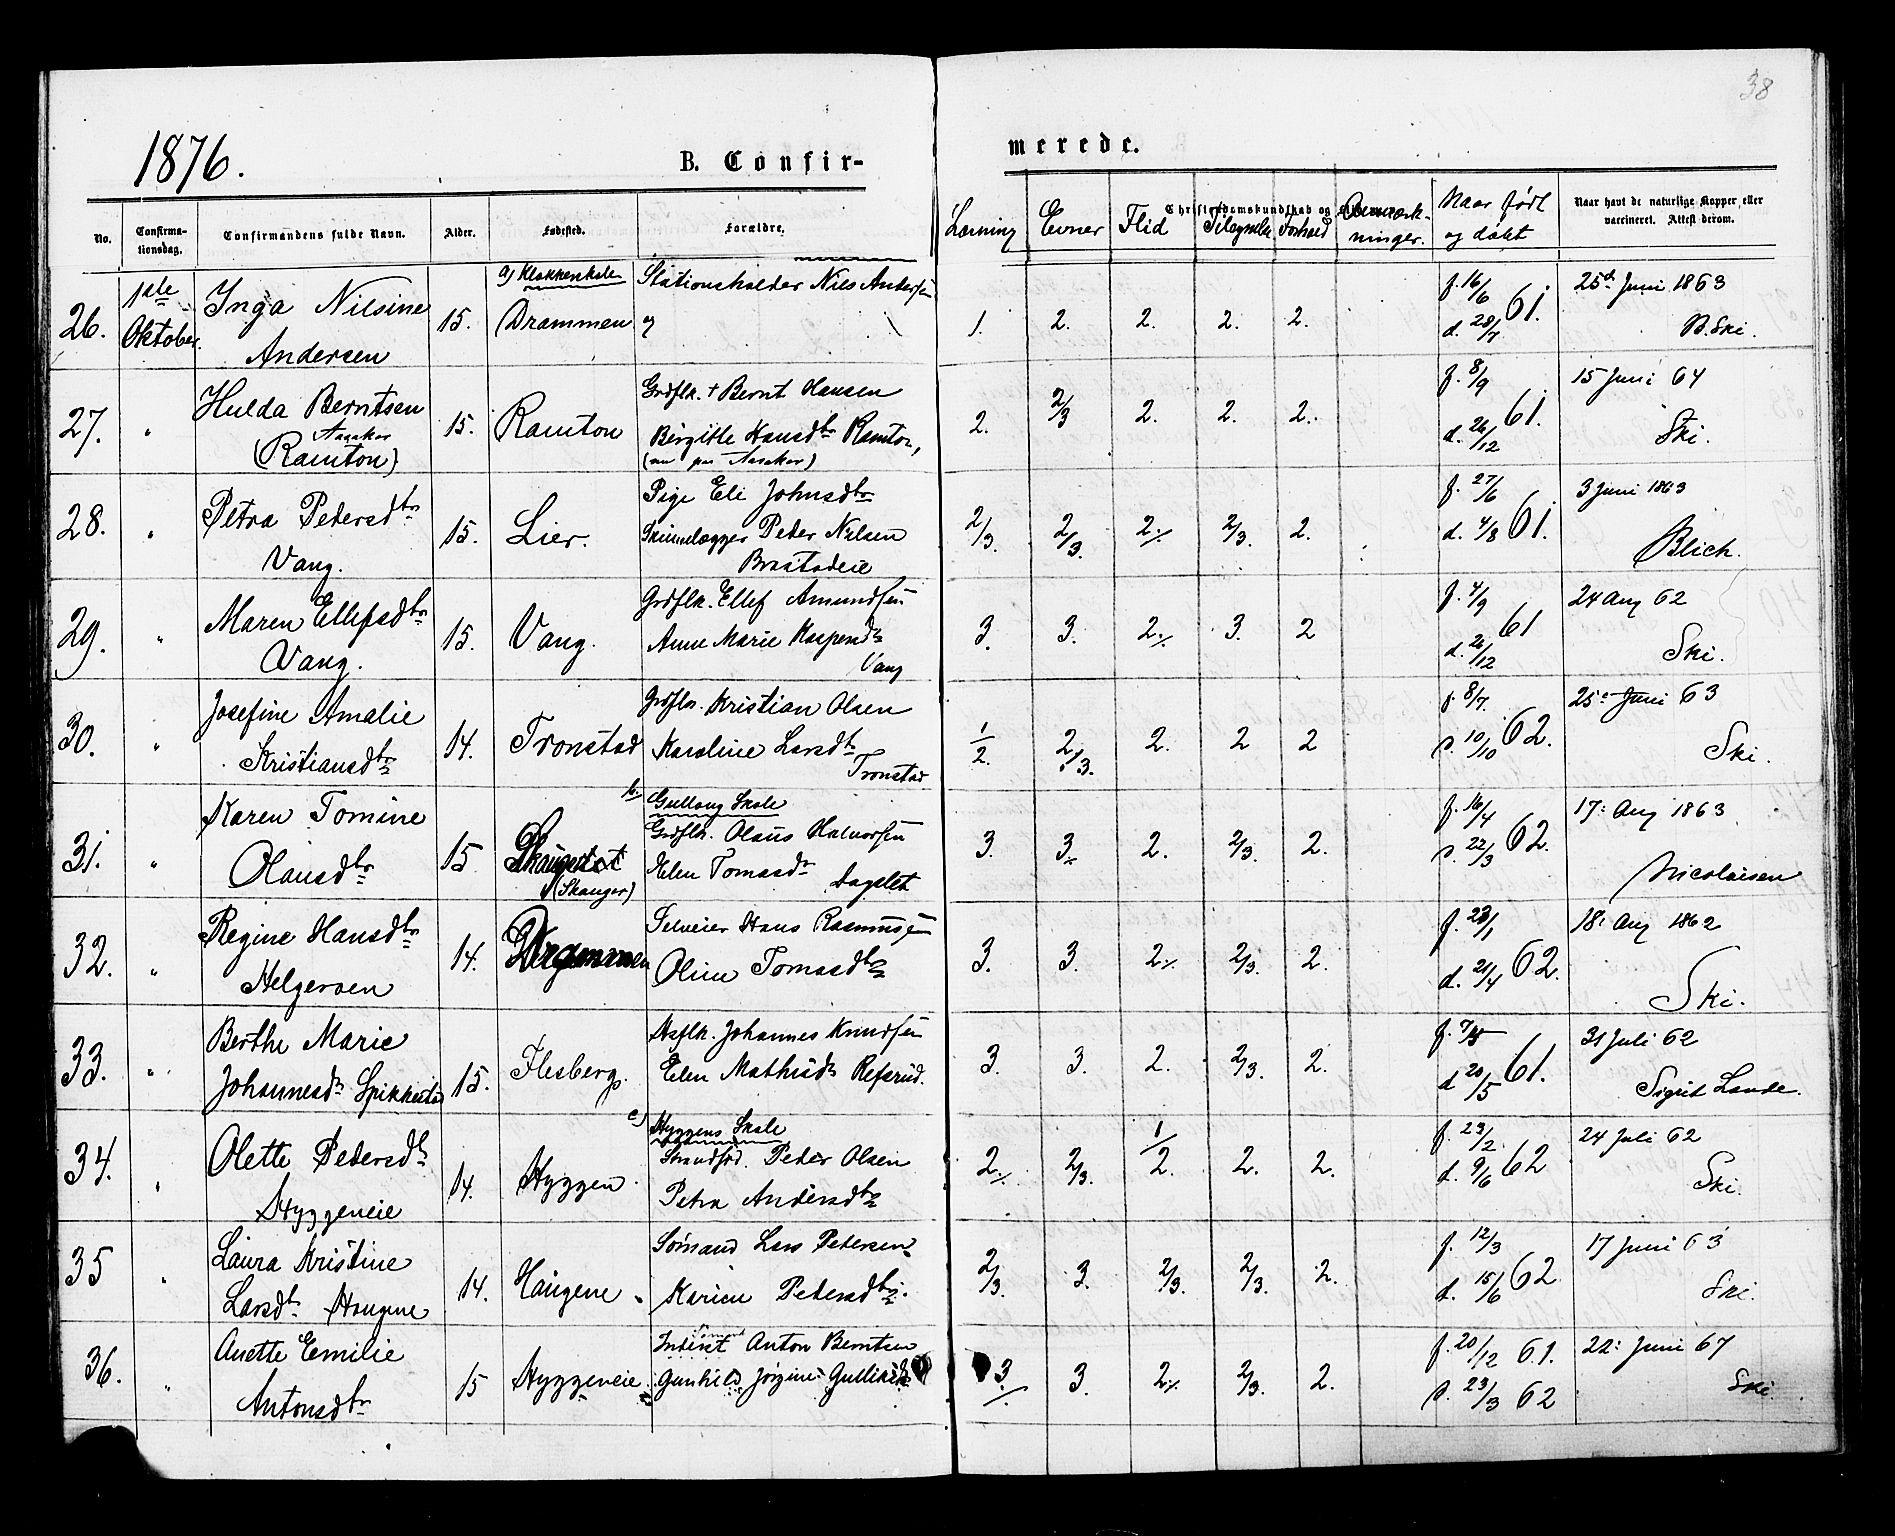 38
1876.
B. Confir-
merede.
No.
Confirma-
tionsdag.
Confirmandens fulde Navn.
Alder.
Fødested.
Forældre.
Læsning
Evner
Flid
Christendomskundskab og
Tilegnelse
Forhold
Bemærk-
ninger.
Naar født
og døbt
Naar havt de naturlige Kopper, eller
vaccineret. Attest derom.
a) Klokkerskole
26. 1ste Oktober. Inga Nilsine 15. Drammen Stationsholder Nils Andersen 1. 2. 2. 2. 2. f. 16/6 61. 25de Juni 1863
Andersen og d. 28/7 B. Ski.
27. " Hulda Berntsen 15. Ramton Grdflk. + Bernt Hansen 2. 2/3 2. 2. 2. f. 8/9 61. 15 Juni 64
Aasaker Birgitte Hansdtr Ramton, d. 26/12 Ski.
(Ramton) (nu paa Aasaker)
28. " Petra Pedersdtr 15. Lier. Pige Eli Johnsdtr 2/3. 2/3. 2⁒ 2/3. 2. f. 27/6 61. 3 Juni 1863
Vang. Peder Nilsen d. 4/8 Blich.
29. " Maren Ellefsdtr 15. Vang. Grdflk. Ellef Amundsen 3. 3. 2⁒ 3. 2 f. 4/9 61 24 Aug 62
Vang. Anne Marie Kaspersdtr d. 26/12 Ski.
Vang
30. " Josefine Amalie 14. Tronstad Grdflk. Kristian Olsen 1/2. 2/3. 2. 2 2 f. 8/7. 62. 25de Juni 63
Kristiansdtr Karoline Larsdtr d. 10/10 Ski.
Tronstad
b. Gullaug Skole
31. " Karen Tomine 15 Grdflk. Olaus Halvorsen 3. 3⁒ 2. 2/3. 2. f. 16/4 62. 17: Aug 1863
Olausdtr (Skauger) Helen Tomasdtr Dagslet d. 22/3 Nicolaisen
32. " Regine Hansdtr 14. Drammen Selveier Hans Rasmussen 3. 3. 2⁒ 2/3. 2. f. 23/1 62. 18: Aug 1862
Helgersen Oline Tomasdtr d. 21/4 Ski.
33. " Berthe Marie 15. Flesberg. Hsflk. Johannes Knudsen 3. 3. 2. 2/3. 2. 61. 31 Juli 62
Johannesdtr Spikkestad Elen Mathisdtr Refsrud. d 20/5 Sigrid Lande.
c) Hyggens Skole
34. " Olette Pedersdtr 14. Hyggen. Strandsid. Peder Olsen 2⁒ 2/3. 1/2. 2. 2. f. 23/2. 62 24 Juli 62
Hyggeneie Petra Andersdtr d. 9/6 Ski.
35 " Laura Kristine 14. Haugene. Sømand Lars Petersen 2/3. 3. 2/3. 2/3. 2. f. 12/3 62 17 Juni 63
Larsdtr Haugene Karen Pedersdtr. d. 15/6 Ski.
36. " Anette Emilie 15 Hyggeneie. Inderst Anton Berntsen 3⁒ 3. 2⁒ 2/3. 2. f. 20/12 61. 22: Juni 67
Antonsdtr Gunhild Jørgine d. 23/3 62 Ski.